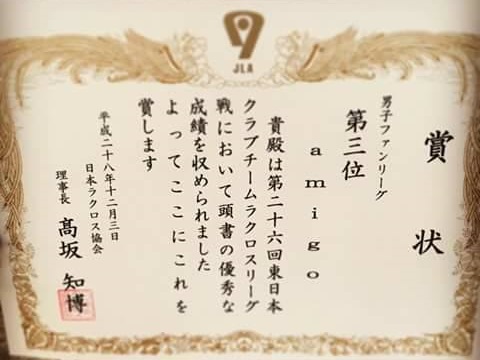 JLA
賞状
男子ファンリーグ
第三位
amigo
貴殿は第二十六回東日本
クラブチームラクロスリーグ
戦において頭書の優秀な
成績を収められました
よってここにこれを
賞します
平成二十八年十二月三日
日本ラクロス協会
理事長 髙坂 知博